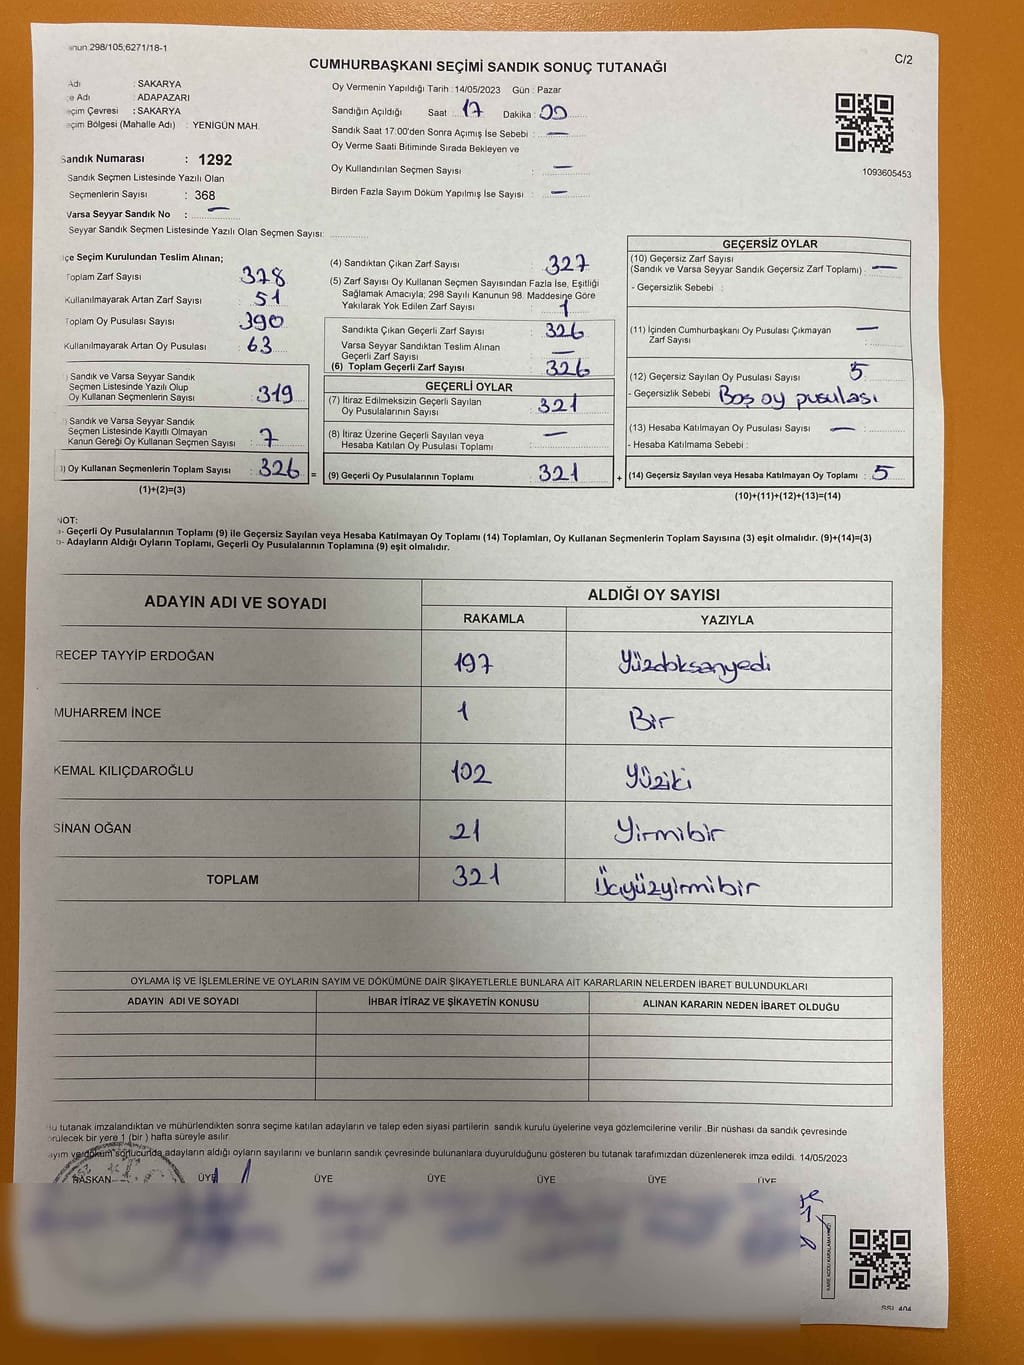 anun.298/105,6271/18-1
C/2
CUMHURBAŞKANI SEÇİMİ SANDIK SONUÇ TUTANAĞI
Adı : SAKARYA
e Adı : ADAPAZARI
eçim Çevresi : SAKARYA
eçim Bölgesi (Mahalle Adı) : YENİGÜN MAH.
Oy Vermenin Yapıldığı Tarih : 14/05/2023 Gün : Pazar
Sandığın Açıldığı Saat : 17 Dakika : 00
Sandık Saat 17:00'den Sonra Açımış İse Sebebi : —
Oy Verme Saati Bitiminde Sırada Bekleyen ve
Oy Kullandırılan Seçmen Sayısı : —
Birden Fazla Sayım Döküm Yapılmış İse Sayısı : —
1093605453
Sandık Numarası : 1292
Sandık Seçmen Listesinde Yazılı Olan
Seçmenlerin Sayısı : 368
Varsa Seyyar Sandık No : —
Seyyar Sandık Seçmen Listesinde Yazılı Olan Seçmen Sayısı:
çe Seçim Kurulundan Teslim Alınan;
Toplam Zarf Sayısı 378
Kullanılmayarak Artan Zarf Sayısı : 51
Toplam Oy Pusulası Sayısı 390
Kullanılmayarak Artan Oy Pusulası : 63
) Sandık ve Varsa Seyyar Sandık
Seçmen Listesinde Yazılı Olup
Oy Kullanan Seçmenlerin Sayısı : 319
) Sandık ve Varsa Seyyar Sandık
Seçmen Listesinde Kayıtlı Olmayan
Kanun Gereği Oy Kullanan Seçmen Sayısı : 7
) Oy Kullanan Seçmenlerin Toplam Sayısı : 326 =
(1)+(2)=(3)
(4) Sandıktan Çıkan Zarf Sayısı : 327
(5) Zarf Sayısı Oy Kullanan Seçmen Sayısından Fazla İse, Eşitliği
Sağlamak Amacıyla; 298 Sayılı Kanunun 98. Maddesine Göre
Yakılarak Yok Edilen Zarf Sayısı : 1
Sandıkta Çıkan Geçerli Zarf Sayısı : 326
Varsa Seyyar Sandıktan Teslim Alınan
Geçerli Zarf Sayısı : —
(6) Toplam Geçerli Zarf Sayısı : 326
GEÇERLİ OYLAR
(7) İtiraz Edilmeksizin Geçerli Sayılan
Oy Pusulalarının Sayısı : 321
(8) İtiraz Üzerine Geçerli Sayılan veya
Hesaba Katılan Oy Pusulası Toplamı : —
(9) Geçerli Oy Pusulalarının Toplamı : 321 +
GEÇERSİZ OYLAR
(10) Geçersiz Zarf Sayısı
(Sandık ve Varsa Seyyar Sandık Geçersiz Zarf Toplamı) : —
- Geçersizlik Sebebi :
(11) İçinden Cumhurbaşkanı Oy Pusulası Çıkmayan
Zarf Sayısı : —
(12) Geçersiz Sayılan Oy Pusulası Sayısı : 5
- Geçersizlik Sebebi : Boş oy pusulası
(13) Hesaba Katılmayan Oy Pusulası Sayısı : —
- Hesaba Katılmama Sebebi :
(14) Geçersiz Sayılan veya Hesaba Katılmayan Oy Toplamı : 5
(10)+(11)+(12)+(13)=(14)
NOT:
a- Geçerli Oy Pusulalarının Toplamı (9) ile Geçersiz Sayılan veya Hesaba Katılmayan Oy Toplamı (14) Toplamları, Oy Kullanan Seçmenlerin Toplam Sayısına (3) eşit olmalıdır. (9)+(14)=(3)
b- Adayların Aldığı Oyların Toplamı, Geçerli Oy Pusulalarının Toplamına (9) eşit olmalıdır.
ADAYIN ADI VE SOYADI
ALDIĞI OY SAYISI
RAKAMLA YAZIYLA
RECEP TAYYİP ERDOĞAN 197 Yüzdoksanyedi
MUHARREM İNCE 1 Bir
KEMAL KILIÇDAROĞLU 102 Yüziki
SİNAN OĞAN 21 Yirmibir
TOPLAM 321 Üçyüzyirmibir
OYLAMA İŞ VE İŞLEMLERİNE VE OYLARIN SAYIM VE DÖKÜMÜNE DAİR ŞİKAYETLERLE BUNLARA AİT KARARLARIN NELERDEN İBARET BULUNDUKLARI
ADAYIN ADI VE SOYADI İHBAR İTİRAZ VE ŞİKAYETİN KONUSU ALINAN KARARIN NEDEN İBARET OLDUĞU
Bu tutanak imzalandıktan ve mühürlendikten sonra seçime katılan adayların ve talep eden siyasi partilerin sandık kurulu üyelerine veya gözlemcilerine verilir .Bir nüshası da sandık çevresinde
örülecek bir yere 1 (bir ) hafta süreyle asılır.
ayım ve döküm sonucunda adayların aldığı oyların sayılarını ve bunların sandık çevresinde bulunanlara duyurulduğunu gösteren bu tutanak tarafımızdan düzenlenerek imza edildi. 14/05/2023
BAŞKAN ÜYE ÜYE ÜYE ÜYE ÜYE ÜYE